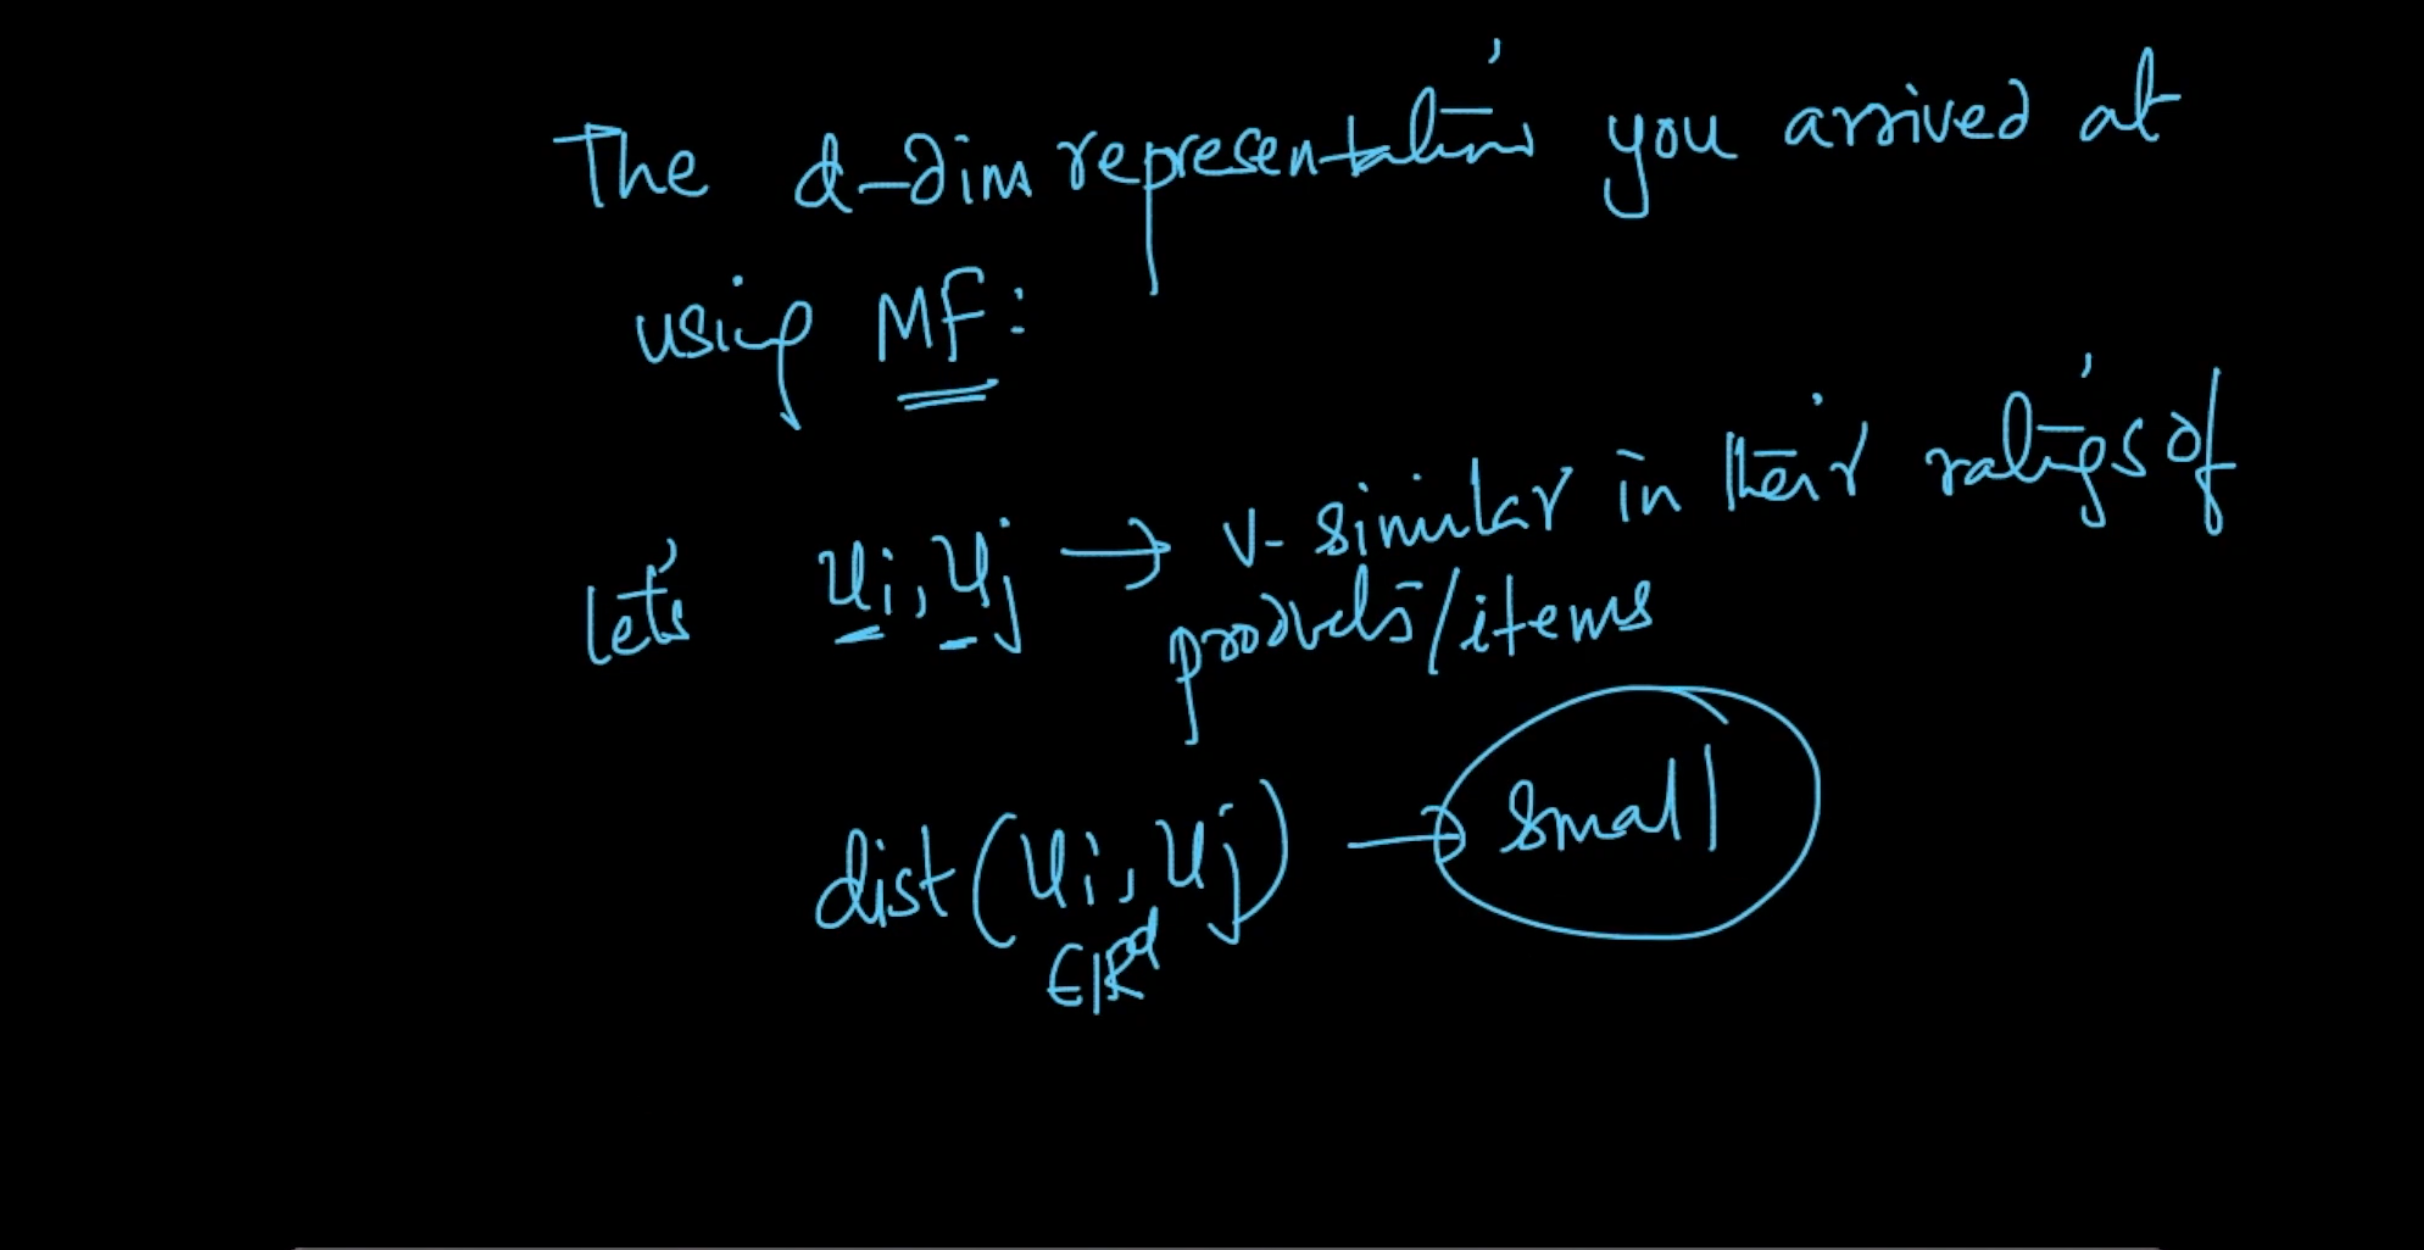 The d-dim representations you arrived at
using MF:
let's ui, uj → v-similar in their ratings of
products/items
dist(ui, uj) → small
∈ℝᵈ